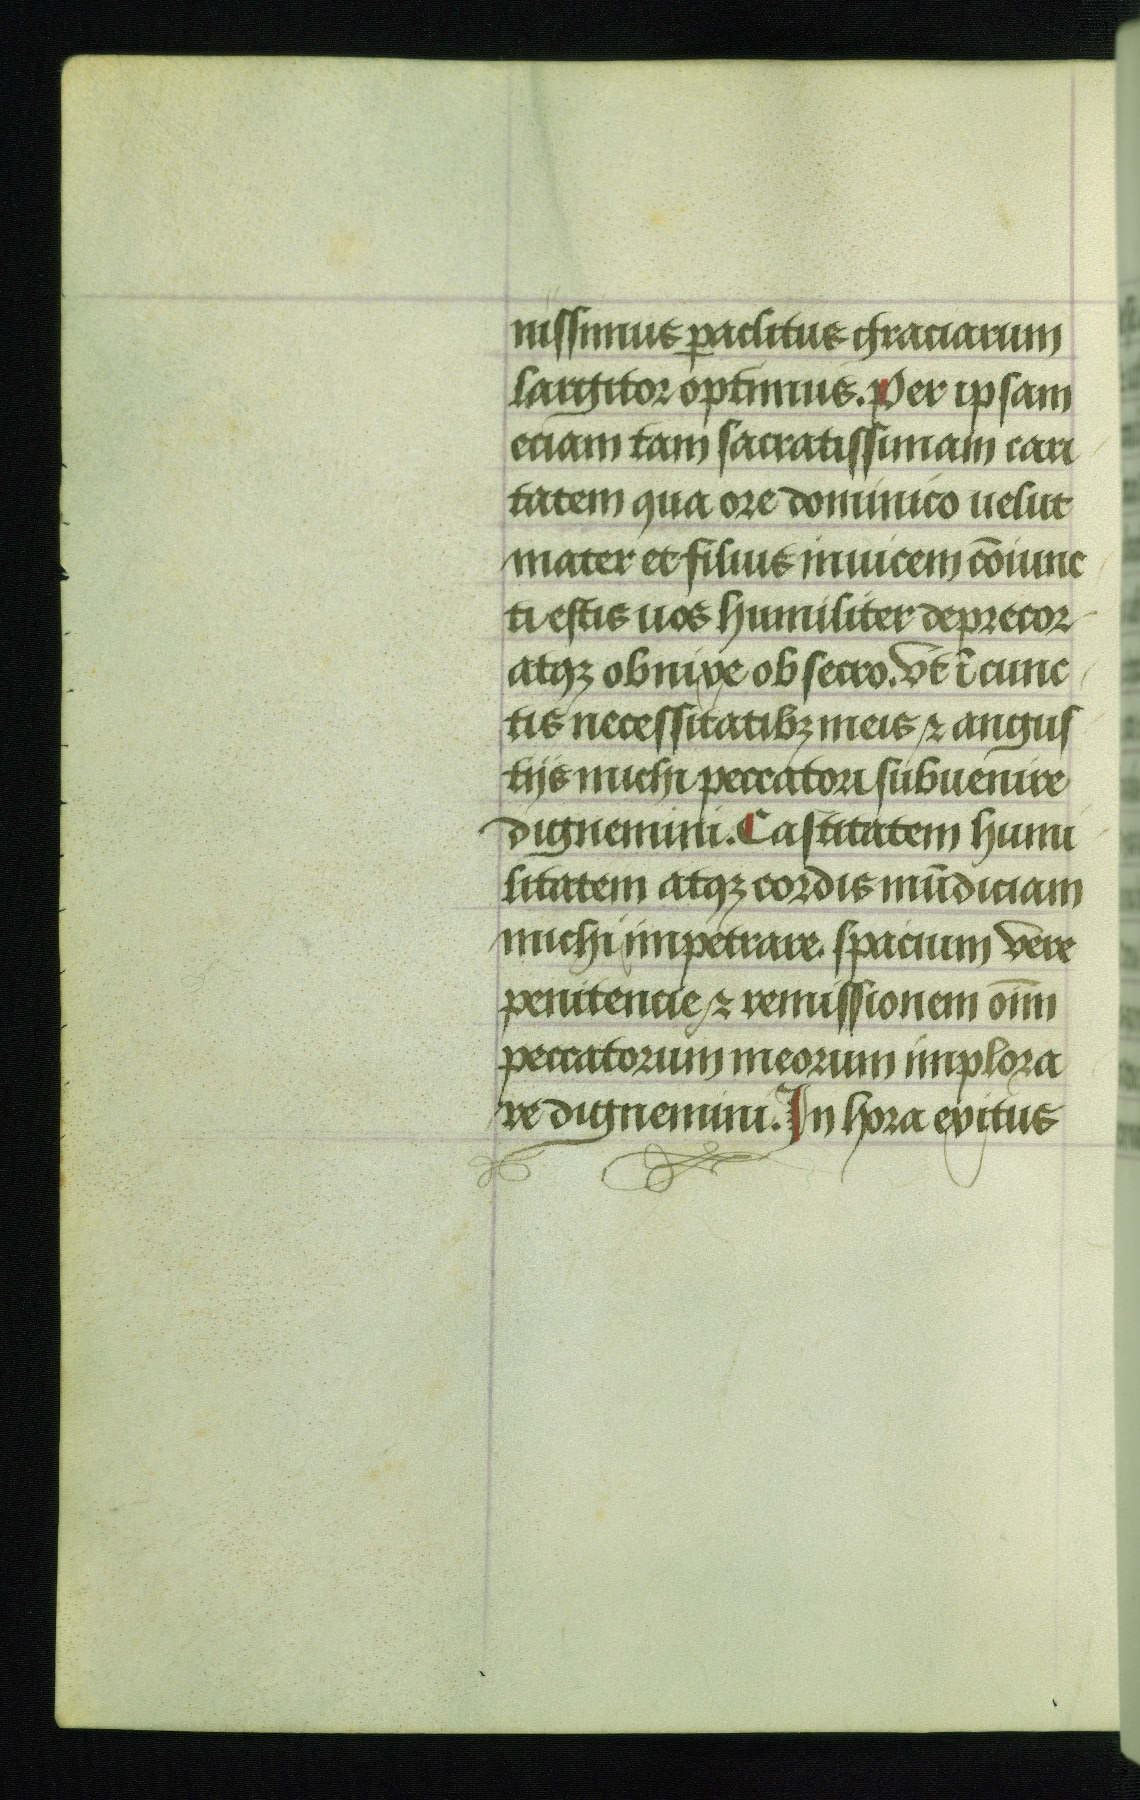 nissimus paclitus graciarum
largitor optimus. Per ipsam
eciam tam sacratissimam cari
tatem qua ore dominico uelut
mater et filius inuicem cōiunc
ti estis uos humiliter deprecor
atqꝫ obnixe obsecro. Vt ī cunc
tis necessitatibꝫ meis ⁊ angus
tijs michi peccatori subuenire
dignemini. Castitatem humi
litatem atqꝫ cordis mūdiciam
michi impetrare. spacium vere
penitencie ⁊ remissionem oīm
peccatorum meorum implora
re dignemini. In hora exitus